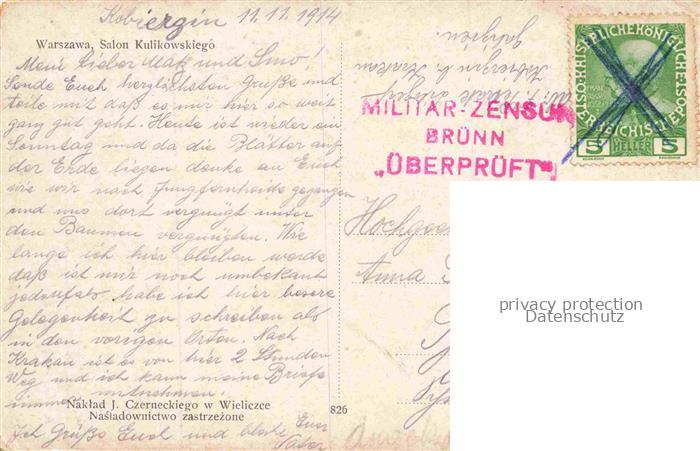 Kobierzin 11.11.1914
Warszawa, Salon Kulikowskiego
Mein Lieber Maß und
Sende Euch herzlichsten Gruße und
teile mit daß es mir hier so weit
ganz gut geht. Heute ist wieder ein
Sonntag und da die Blätter auf
der Erde liegen denke an Euch
wie wir nach Jungfernheide gegangen
und uns dort vergnügt unter
den Baumen vergnügten. Wie
lange ich hier bleiben werde
daß ist mir noch unbekant
jedenfals habe ich hier besere
Gelegenheit zu schreiben als
in den vorigen Orten. Nach
Krakau ist es von hier 2 Stunden
Weg und ich kann meine Briefe
immer mitnehmen.
Nakład J. Czerneckiego w Wieliczce
Naśladownictwo zastrzeżone
Ich Grüße Euch und bleibe Euer
Vater
826
Kobierzin b. Krakau
Galizien.
MILITÄR-ZENSUR
BRÜNN
„ÜBERPRÜFT"
KAISERLICHE KÖNIGLICHE ÖSTERREICHISCHE
5 HELLER 5
Anna
privacy protection
Datenschutz